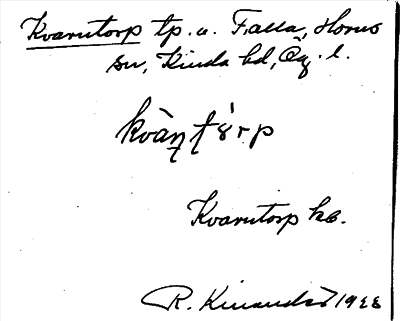 Kvarntorp tp. u. Falla, Horns
sn, Kinda hd, Ög. l.
kvàɳtó̤rp
Kvarntorp kb.
R. Kinander 1928